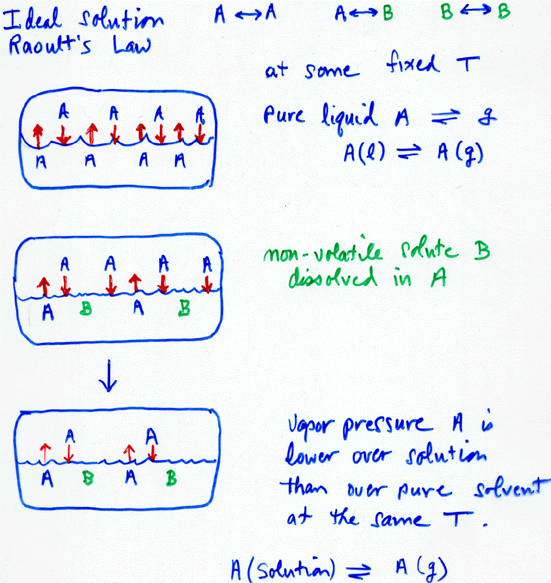 Ideal solution A ↔ A A ↔ B B ↔ B
Raoult's Law
at some fixed T
pure liquid A ⇌ g
A(l) ⇌ A(g)
A A A A
A A A A
non-volatile solute B
dissolved in A
A A A A
A B A B
vapor pressure A is
lower over solution
than over pure solvent
at the same T.
A A
A B A B
A (solution) ⇌ A (g)